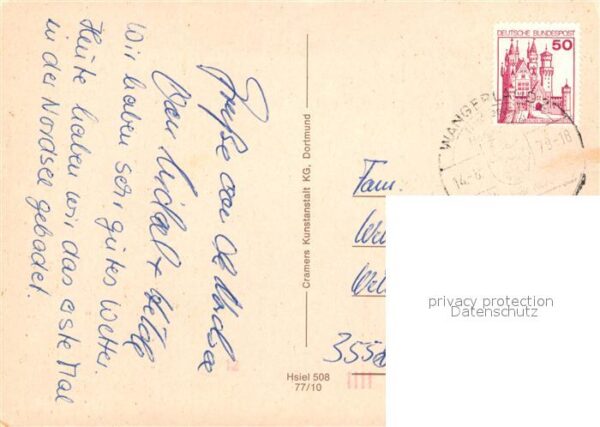 Grüße von der Nordsee
Von
Wir haben sehr gutes Wetter.
Heute haben wir das erste Mal
in der Nordsee gebadet.
Cramers Kunstanstalt KG, Dortmund
Hsiel 508
77/10
DEUTSCHE BUNDESPOST
50
WANGERLAND
14.-6. 79-18
Fam.
355
privacy protection
Datenschutz